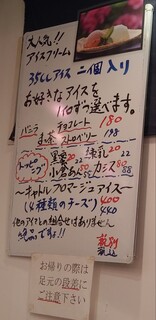 大人気!!
アイスクリーム
354しアイス 二個入り
お好きなアイスを
1つずつ選べます。
バニラ チョコレート 180
抹茶 ストロベリー 198
トッピング 黒蜜20 練乳20 22
小倉あん80 カシス80 88
〜キャトルフロマージュアイス〜
(4種類のチーズ) 400
440
他のアイスとの組合せはありません
絶品です!!
お帰りの際は
足元の段差に
ご注意下さい